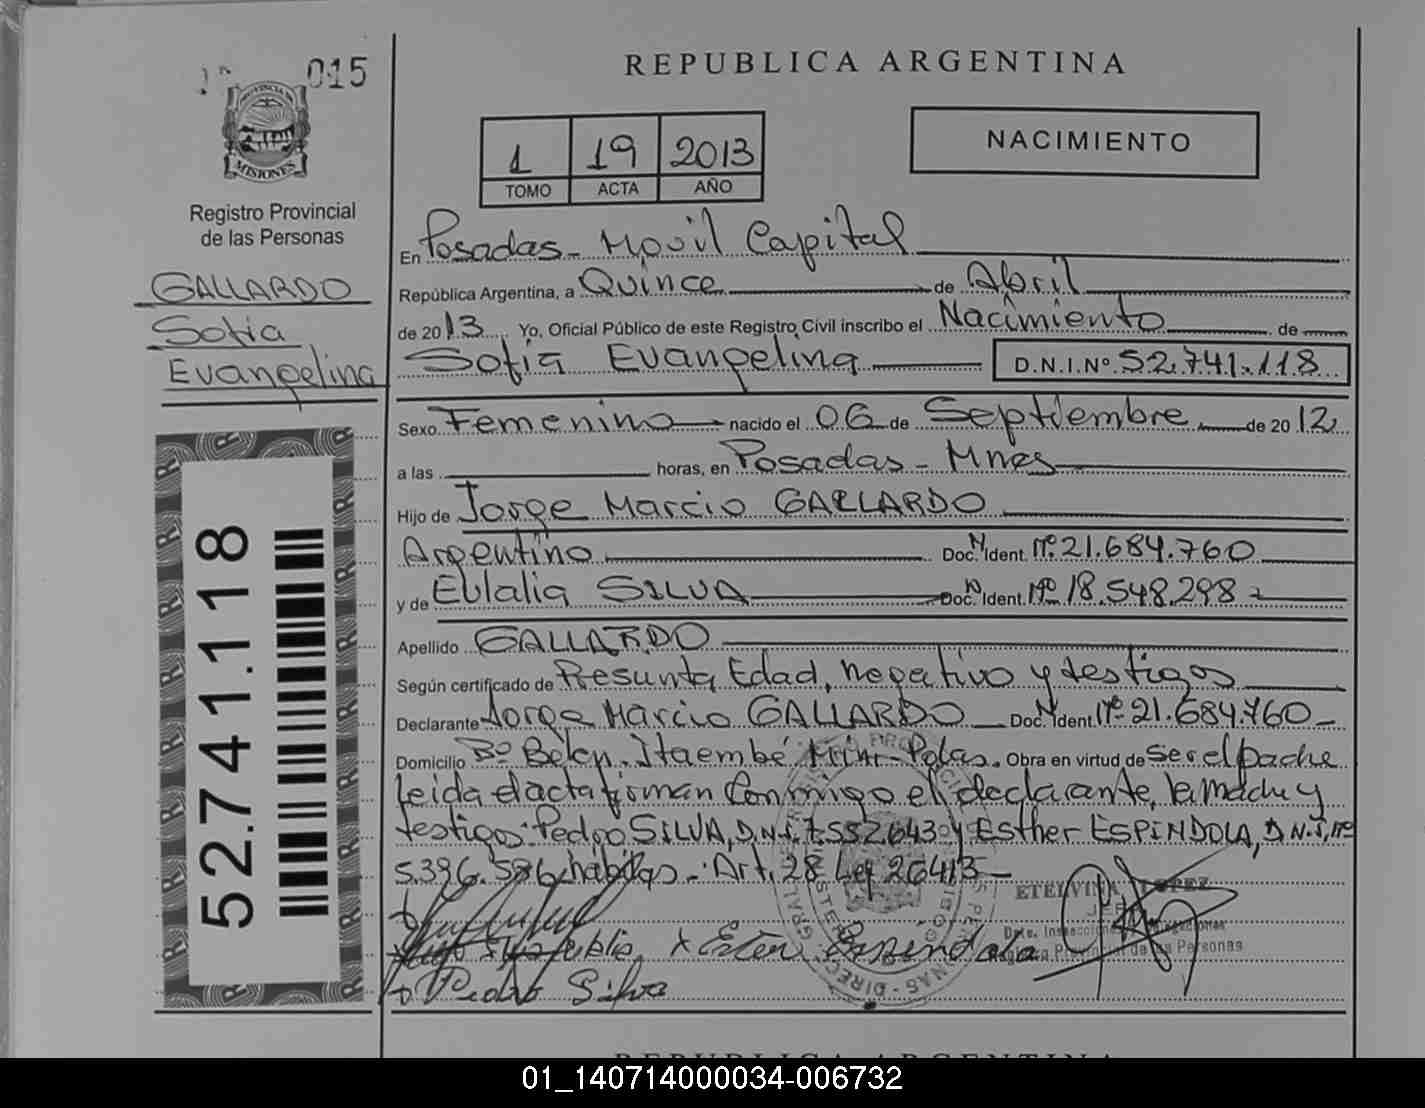 015
REPUBLICA ARGENTINA
PROVINCIA DE
MISIONES
Registro Provincial
de las Personas
1 19 2013
TOMO ACTA AÑO
NACIMIENTO
GALLARDO
Sofia
Evangelina
52.741.118
En Posadas - Movil Capital
República Argentina, a Quince de Abril
de 2013 Yo, Oficial Público de este Registro Civil inscribo el Nacimiento de
Sofia Evangelina D.N.I.Nº 52.741.118
Sexo Femenino nacido el 06 de Septiembre de 2012
a las horas, en Posadas - Mnes
Hijo de Jorge Marcio GALLARDO
Argentino Doc. N Ident. Nº 21.684.760
y de Eulalia SILVA Doc. N Ident. Nº 18.548.298
Apellido GALLARDO
Según certificado de Presunta Edad, negativo y testigos
Declarante Jorge Marcio GALLARDO Doc. N Ident. Nº 21.684.760
Domicilio Bº Belen. Itaembé Miní - Pdas. Obra en virtud de ser el padre
leida el acta firman conmigo el declarante, la madre y
testigos: Pedro SILVA, D.N.I. 7.552.643 y Esther ESPINDOLA, D.N.I. Nº
5.396.586 habiles. Art. 28 Ley 26413
ETELVINA LOPEZ
JEFE
Dpto. Inspección Delegaciones
Registro Provincial de las Personas
x Ester Espíndola
x Pedro Silva
REPUBLICA ARGENTINA
01_140714000034-006732